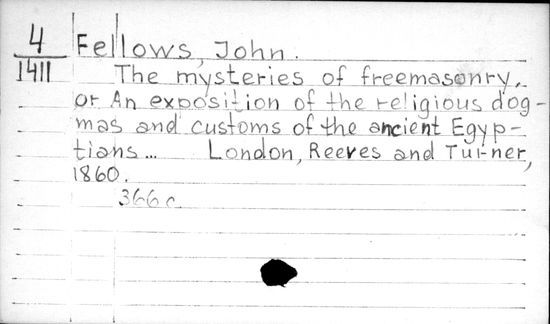 4 Fellows, John.
1411 The mysteries of freemasonry,
or An exposition of the religious dog-
mas and customs of the ancient Egyp-
tians... London, Reeves and Turner,
1860.
366 c.